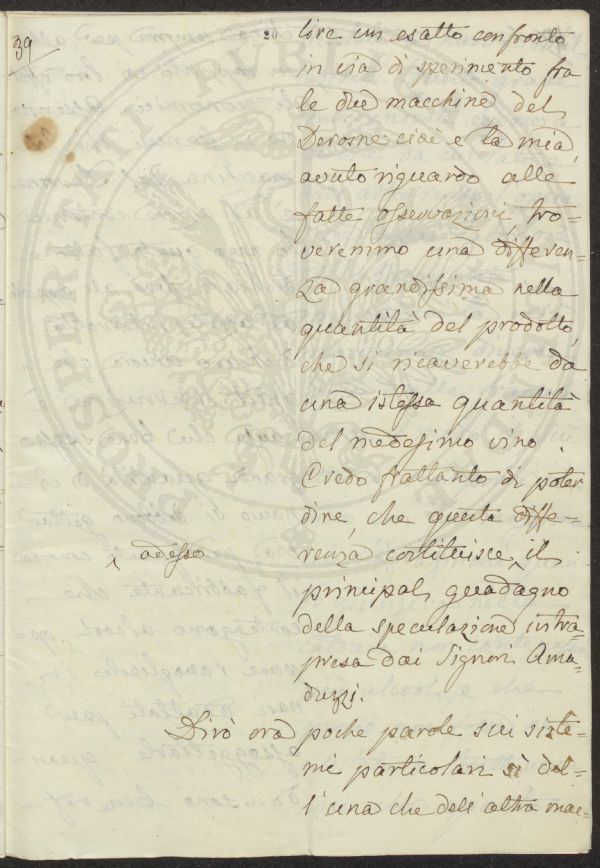 39
20
lire un esatto confronto
in via di sperimento fra
le due macchine del
Derosne cioè e la mia,
avuto riguardo alle
fatte osservazioni, tro=
veremmo una differen=
za grandissima nella
quantità del prodotto,
che si ricaverebbe da
una istessa quantità
del medesimo vino.
Credo frattanto di poter
dire, che questa diffe=
renza costituisce ^ il
^ adesso
principal guadagno
della speculazione intra=
presa dai Signori Ama=
duzzi.
Dirò ora poche parole sui siste=
mi particolari sì del=
l'una che dell'altra mac=